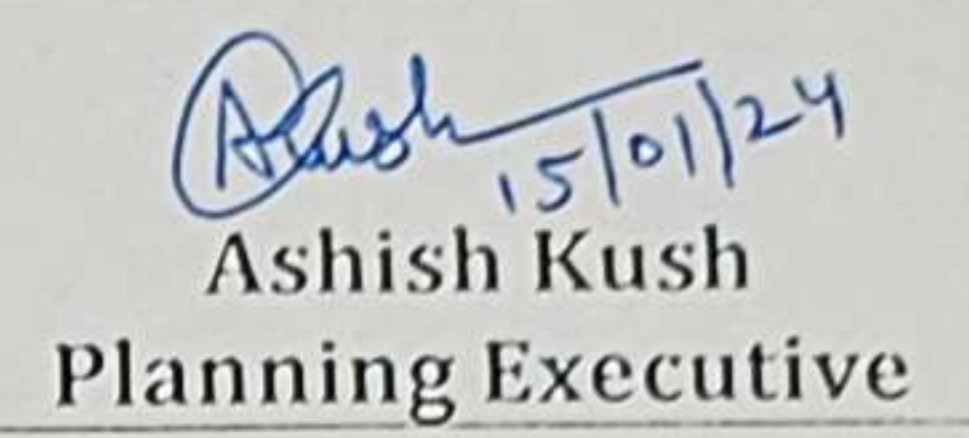 Ashish
15/01/24
Ashish Kush
Planning Executive